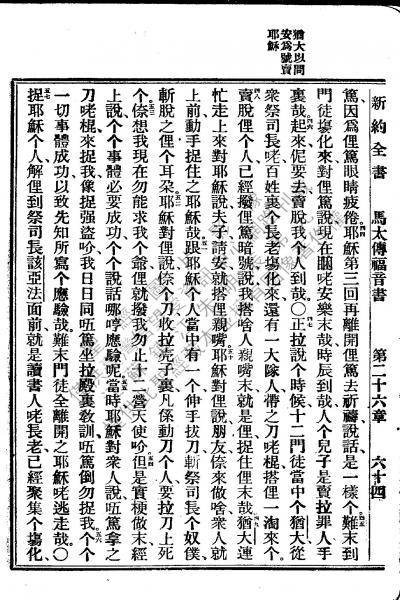 猶大以問
安爲號賣
耶穌
新約全書 馬太傳福音書 第二十六章 六十四
篤因爲俚篤眼睛疲倦耶穌第三回再離開俚篤去祈禱說話是一樣个難末到
門徒塲化來對俚篤說現在睏咾安樂末哉時辰到哉人个兒子是賣拉罪人手
裏哉起來伲要去賣脫我个人到哉〇正拉說个時候十二門徒當中个猶大從
衆祭司長咾百姓裏个長老塲化來還有一大隊人帶之刀咾棍搭俚一淘來个
賣脫俚个人已經撥俚篤暗號說我搭啥人親嘴末就是俚捉住俚末哉猶大連
忙走上來對耶穌說夫子請安就搭俚親嘴耶穌對俚說朋友㑚來做啥衆人就
上前動手捉住之耶穌哉跟耶穌个人當中有一个伸手拔刀斬祭司長个奴僕
斬脫之俚个耳朵耶穌對俚說㑚个刀收拉壳子裏凡係動刀个人要拉刀上死
个㑚想我現在勿能求我个爺俚就撥我勿止十二營天使吤但是實梗做末經
上說个个事體必要成功个个說話哪哼應驗呢當時耶穌對衆人說㕶篤拿之
刀咾棍來捉我像捉强盜吤我日日同㕶篤坐拉殿裏敎訓㕶篤倒勿捉我个个
一切事體成功以致先知所寫个應驗哉難末門徒全離開之耶穌咾逃走哉〇
捉耶穌个人解俚到祭司長該亞法面前就是讀書人咾長老已經聚集个塲化